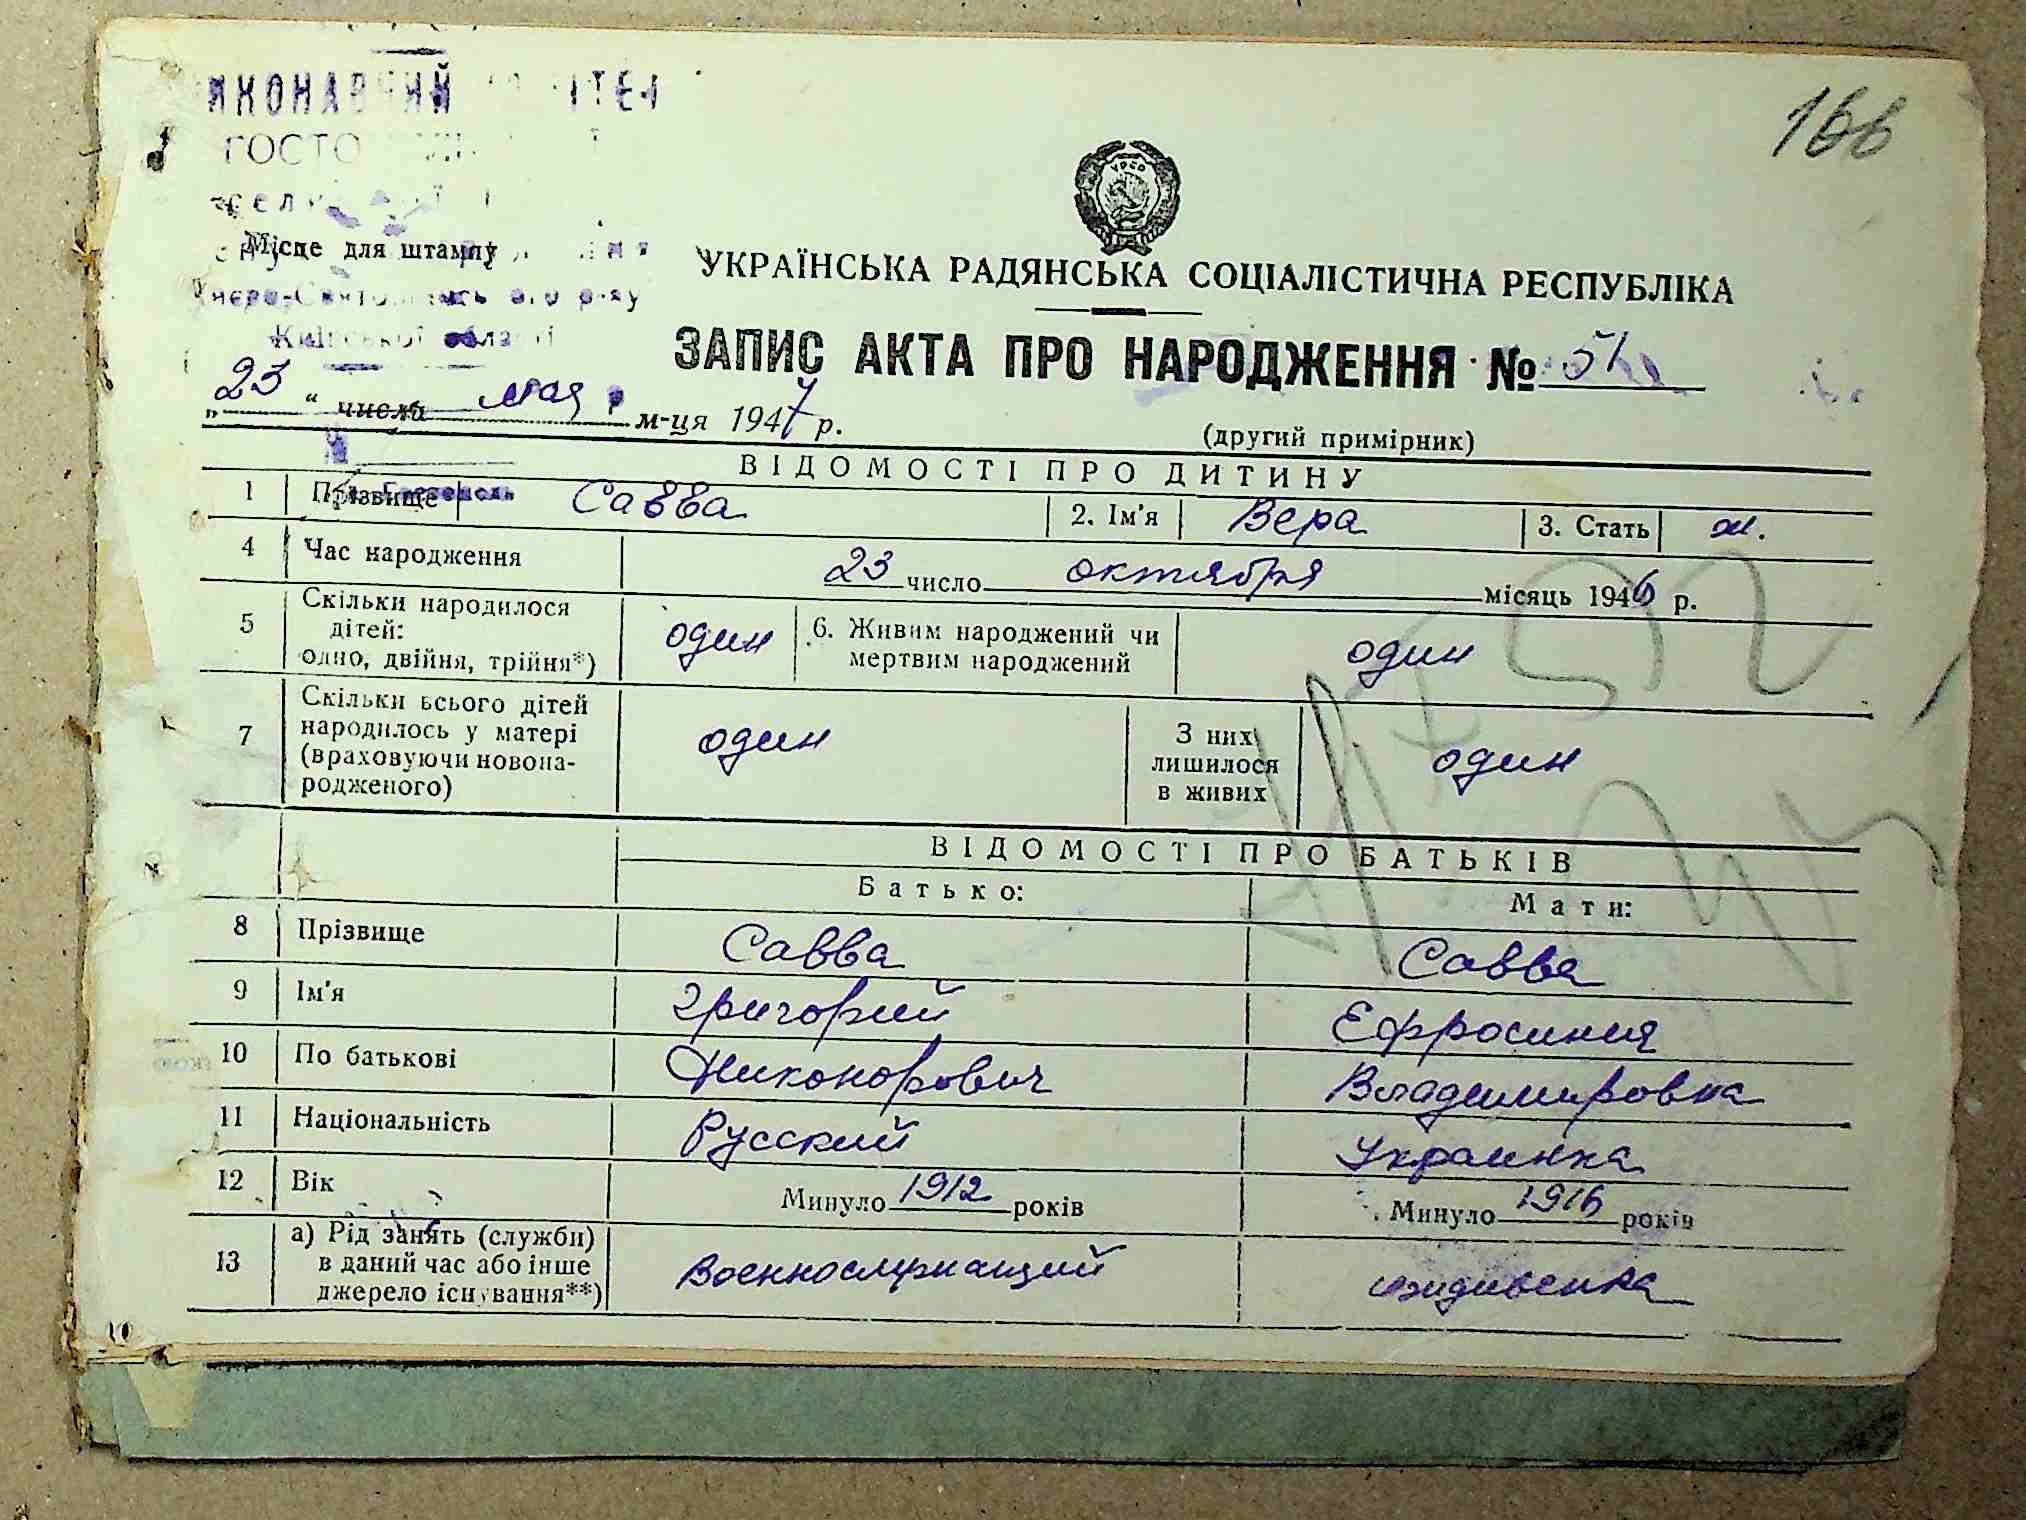 166
УРСР
Місце для штампу
УКРАЇНСЬКА РАДЯНСЬКА СОЦІАЛІСТИЧНА РЕСПУБЛІКА
Київської області
ЗАПИС АКТА ПРО НАРОДЖЕННЯ № 51
„23“ числа мая м-ця 1947 р.
(другий примірник)
ВІДОМОСТІ ПРО ДИТИНУ
1 Прізвище Савва 2. Ім'я Вера 3. Стать ж.
4 Час народження 23 число октября місяць 1946 р.
5 Скільки народилося дітей: одно, двійня, трійня*) один 6. Живим народжений чи мертвим народжений один
7 Скільки всього дітей народилось у матері (враховуючи новонародженого) один З них лишилося в живих один
ВІДОМОСТІ ПРО БАТЬКІВ
Батько: Мати:
8 Прізвище Савва Савва
9 Ім'я Григорий Ефросиния
10 По батькові Никонорович Владимировна
11 Національність Русский Украинка
12 Вік Минуло 1912 років Минуло 1916 років
13 а) Рід занять (служби) в даний час або інше джерело існування**) Военнослужащий иждивенка